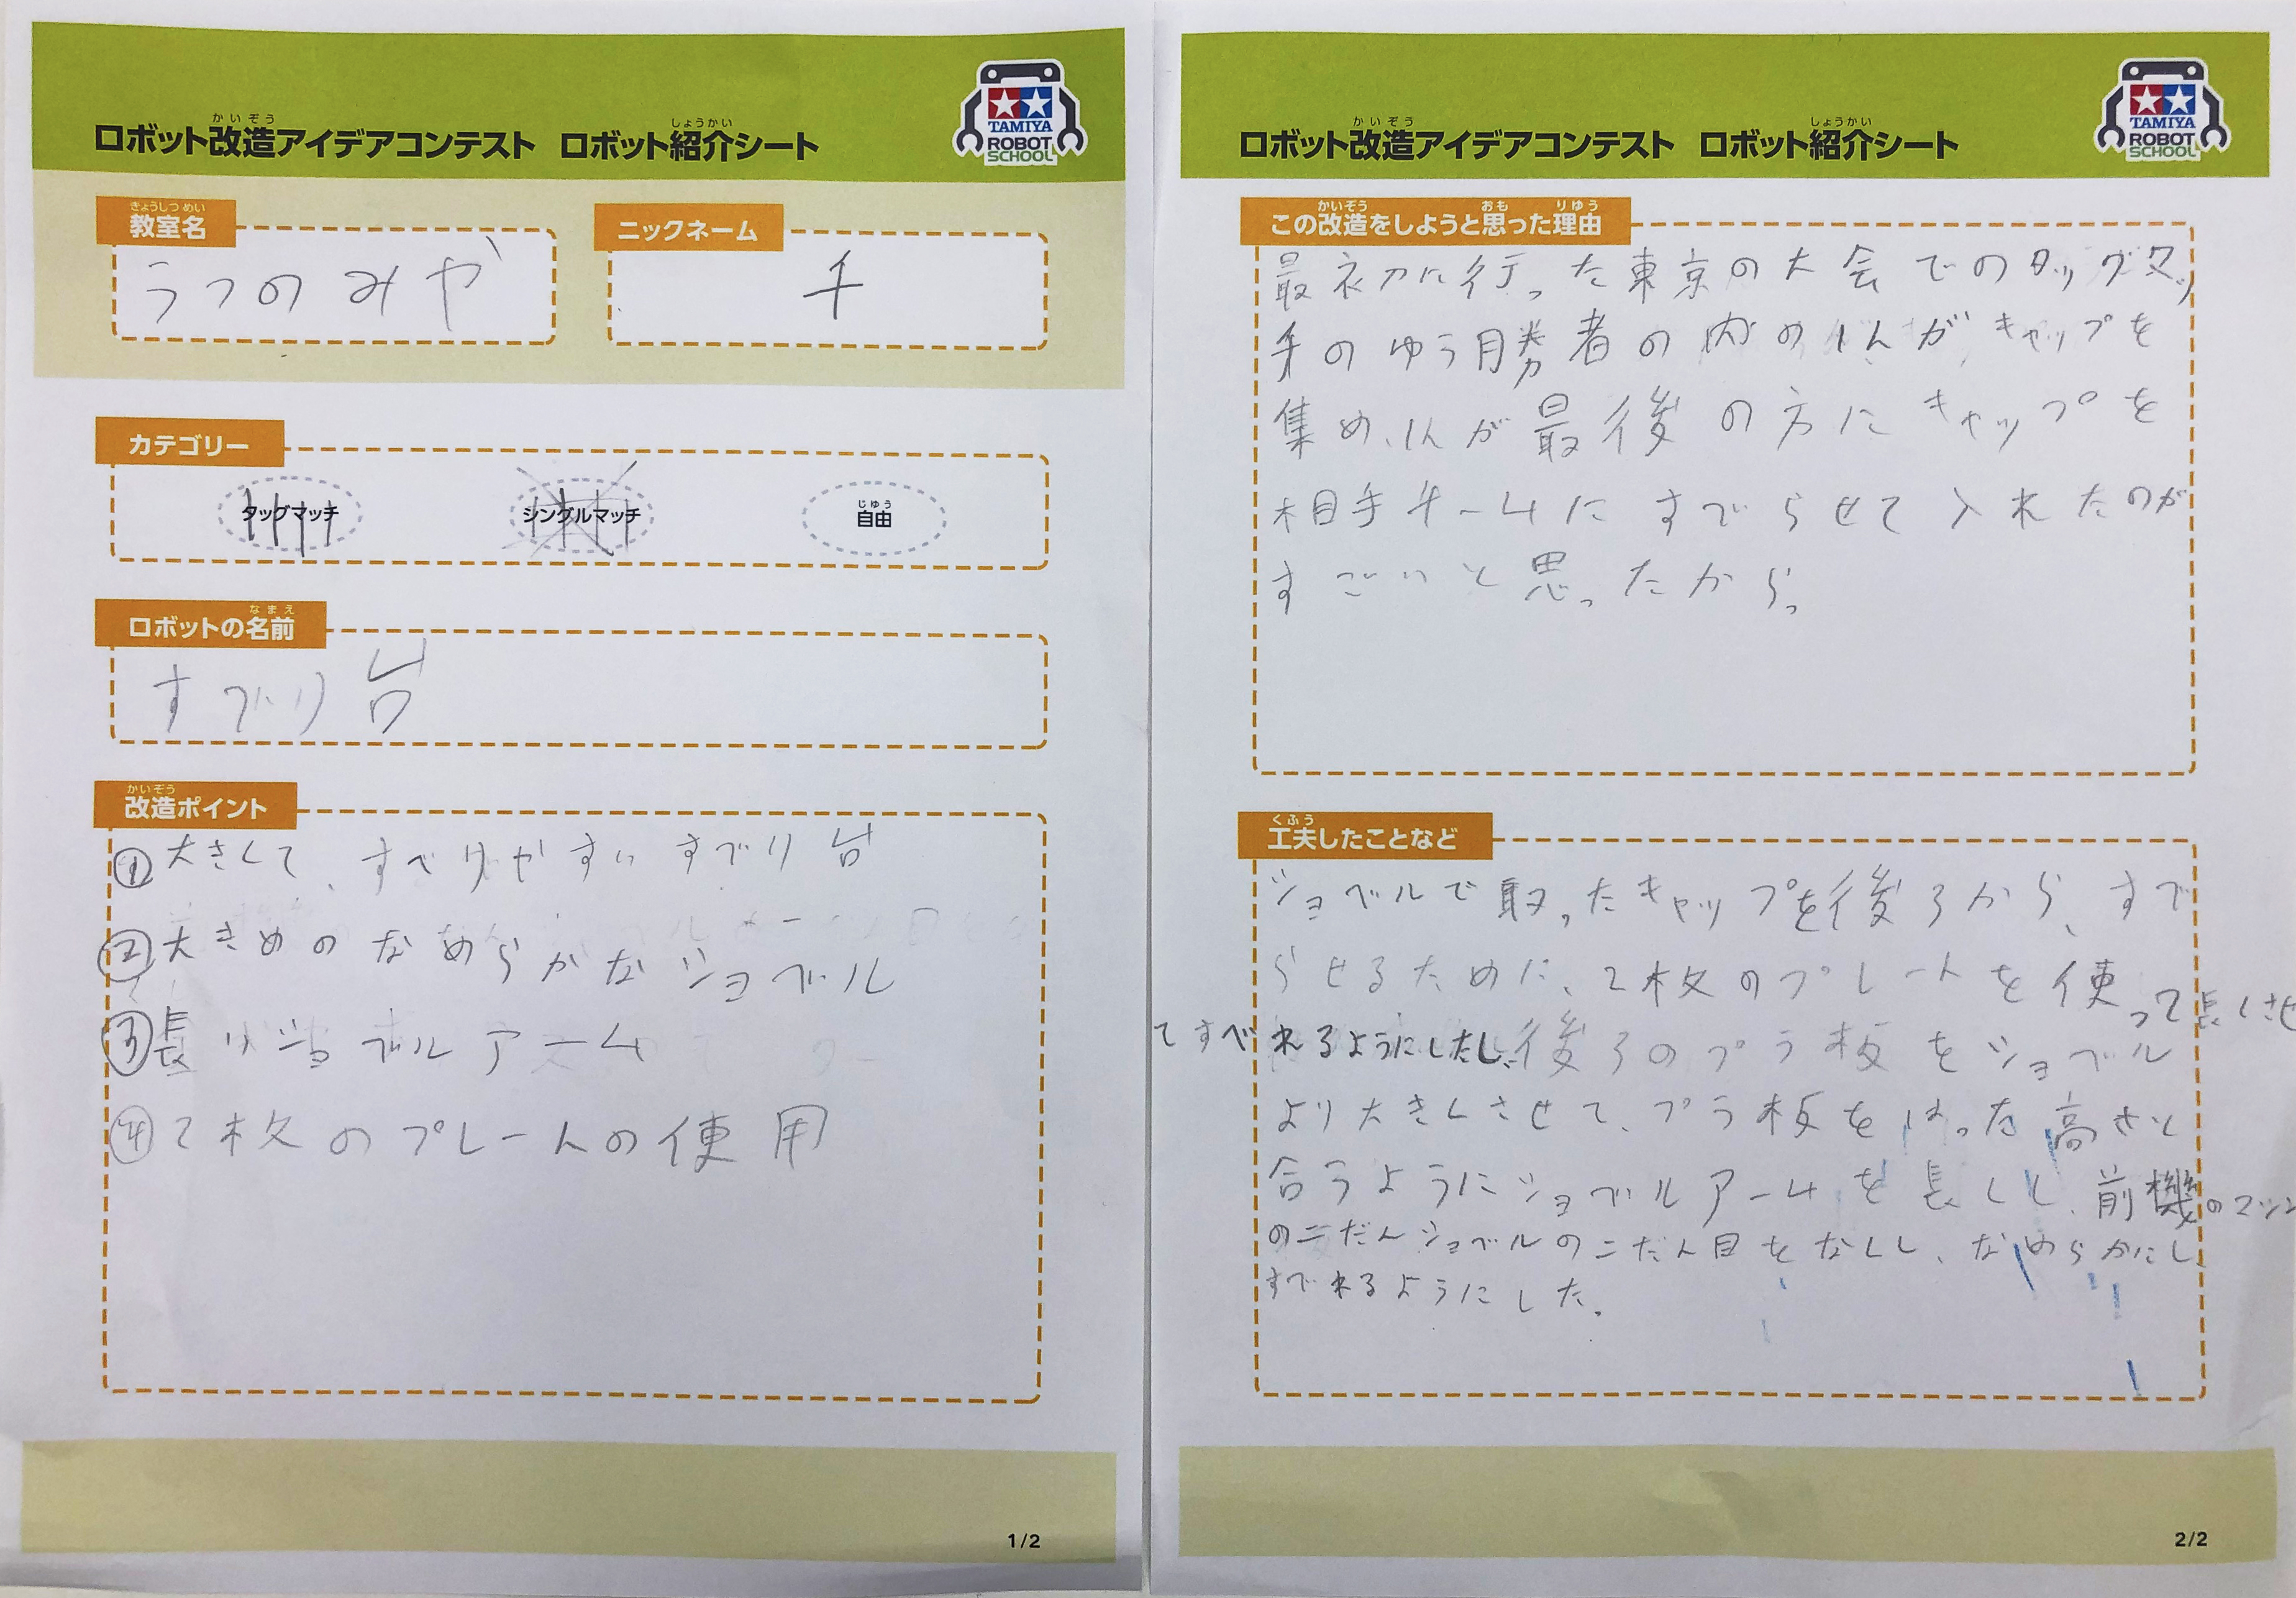 かいぞう しょうかい
ロボット改造アイデアコンテスト ロボット紹介シート
TAMIYA
ROBOT
SCHOOL
きょうしつ めい
教室名
うつのみや
ニックネーム
千
カテゴリー
タッグマッチ
シングルマッチ
じゆう
自由
なまえ
ロボットの名前
すべり台
かいぞう
改造ポイント
①大きくて、すべりやすいすべり台
②大きめのなめらかなショベル
③長いショベルアーム
④2枚のプレートの使用
1/2
かいぞう しょうかい
ロボット改造アイデアコンテスト ロボット紹介シート
TAMIYA
ROBOT
SCHOOL
かいぞう おも りゆう
この改造をしようと思った理由
最初に行った東京の大会でのタッグマッ
チのゆう勝者の内の1人がキャップを
集め、1人が最後の方にキャップを
相手チームにすべらせて入れたのが
すごいと思ったから。
くふう
工夫したことなど
ショベルで取ったキャップを後ろから、すべ
らせるために、2枚のプレートを使って長くさせ
てすべれるようにしたし、後ろのプラ板をショベル
より大きくさせて、プラ板をはった高さと
合うようにショベルアームを長くし、前機のマシン
の二だんショベルの二だん目をなくし、なめらかにし
すべれるようにした。
2/2